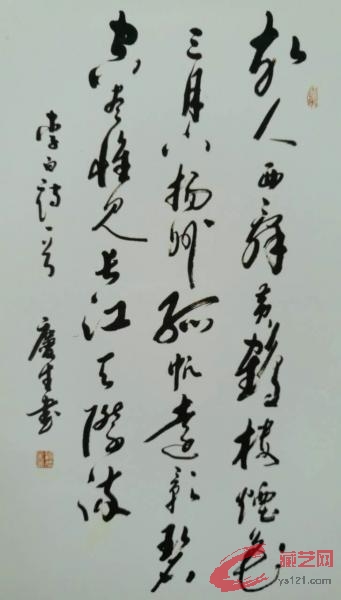 故人西辞黄鹤楼烟花
三月下扬州孤帆远影碧
空尽惟见长江天际流
李白诗一首 庆生书
藏艺网
ys121.com